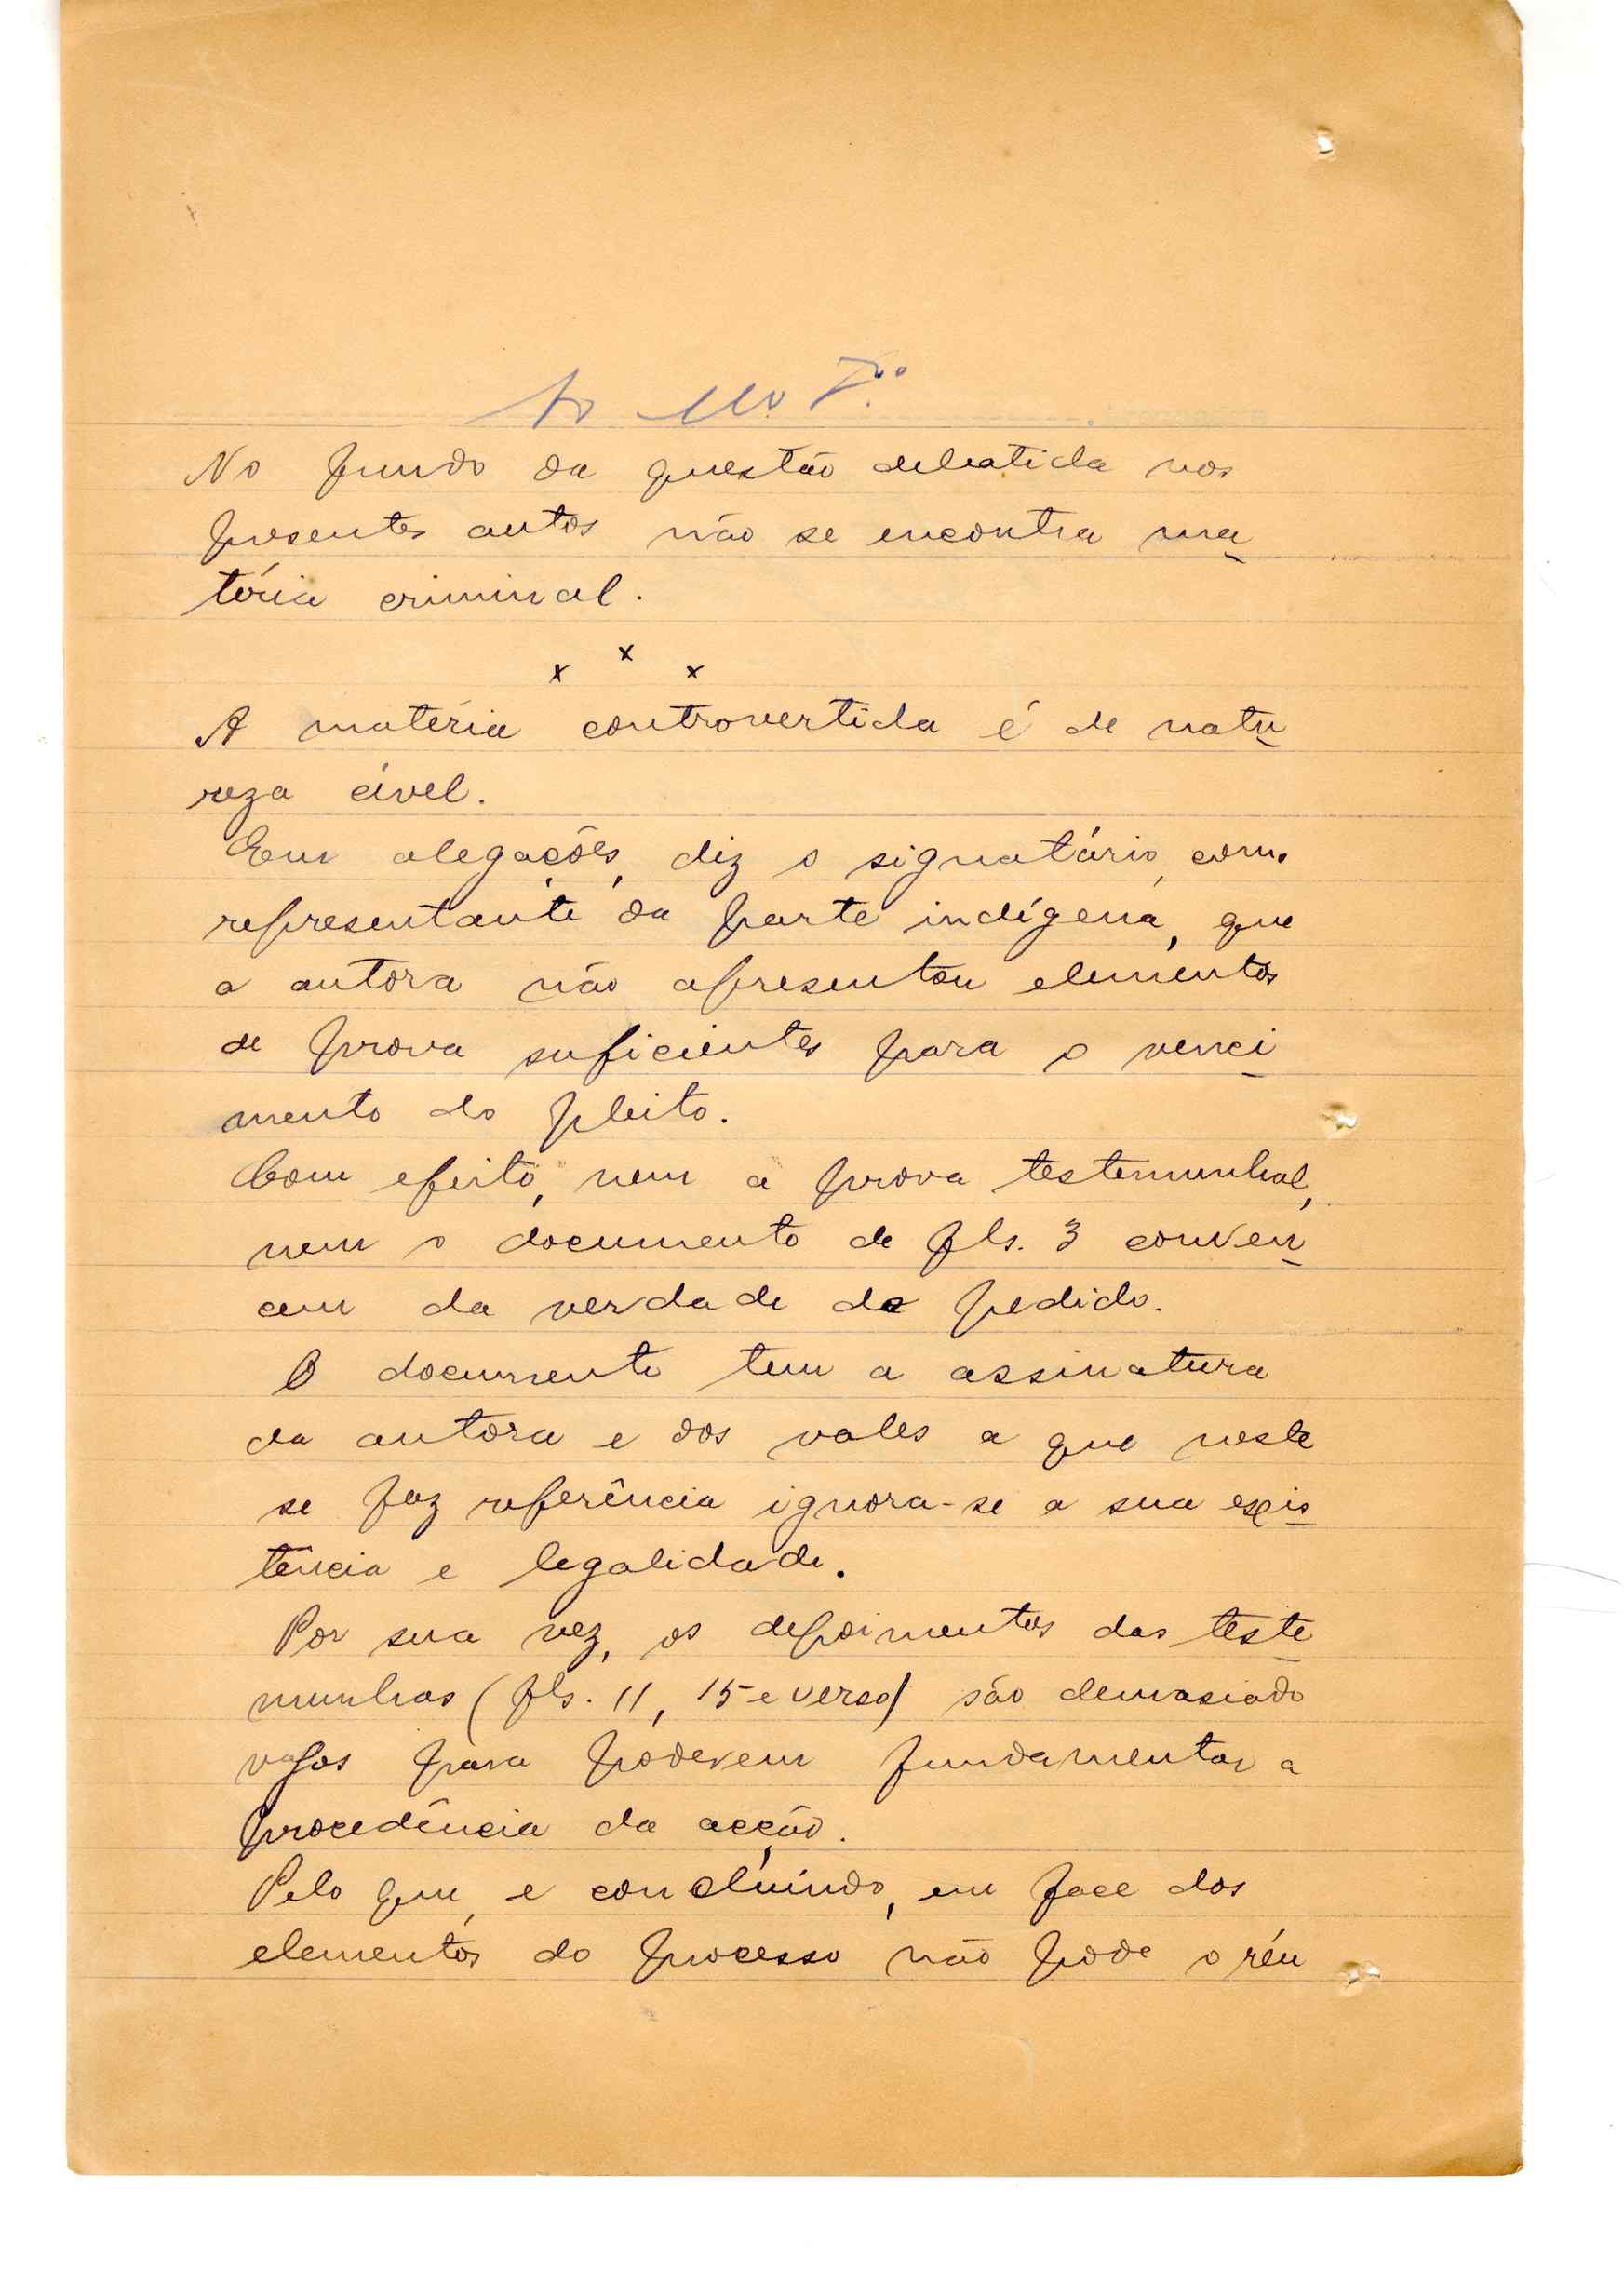 Ao M.º P.ᶜᵒ
No fundo da questão debatida nos
presentes autos não se encontra ma
téria criminal.
x x x
A matéria controvertida é de natu
reza cível.
Em alegações, diz o signatário, como
representante da parte indígena, que
a autora não apresentou elementos
de prova suficientes para o venci
mento do pleito.
Com efeito, nem a prova testemunhal,
nem o documento de fls. 3 conven
cem da verdade do pedido.
O documento tem a assinatura
da autora e dos vales a que neste
se faz referência ignora-se a sua exis
tência e legalidade.
Por sua vez, os depoimentos das teste
munhas (fls. 11, 15 e verso) são demasiado
vagos para poderem fundamentar a
procedência da acção.
Pelo que, e concluíndo, em face dos
elementos do processo não pode o réu